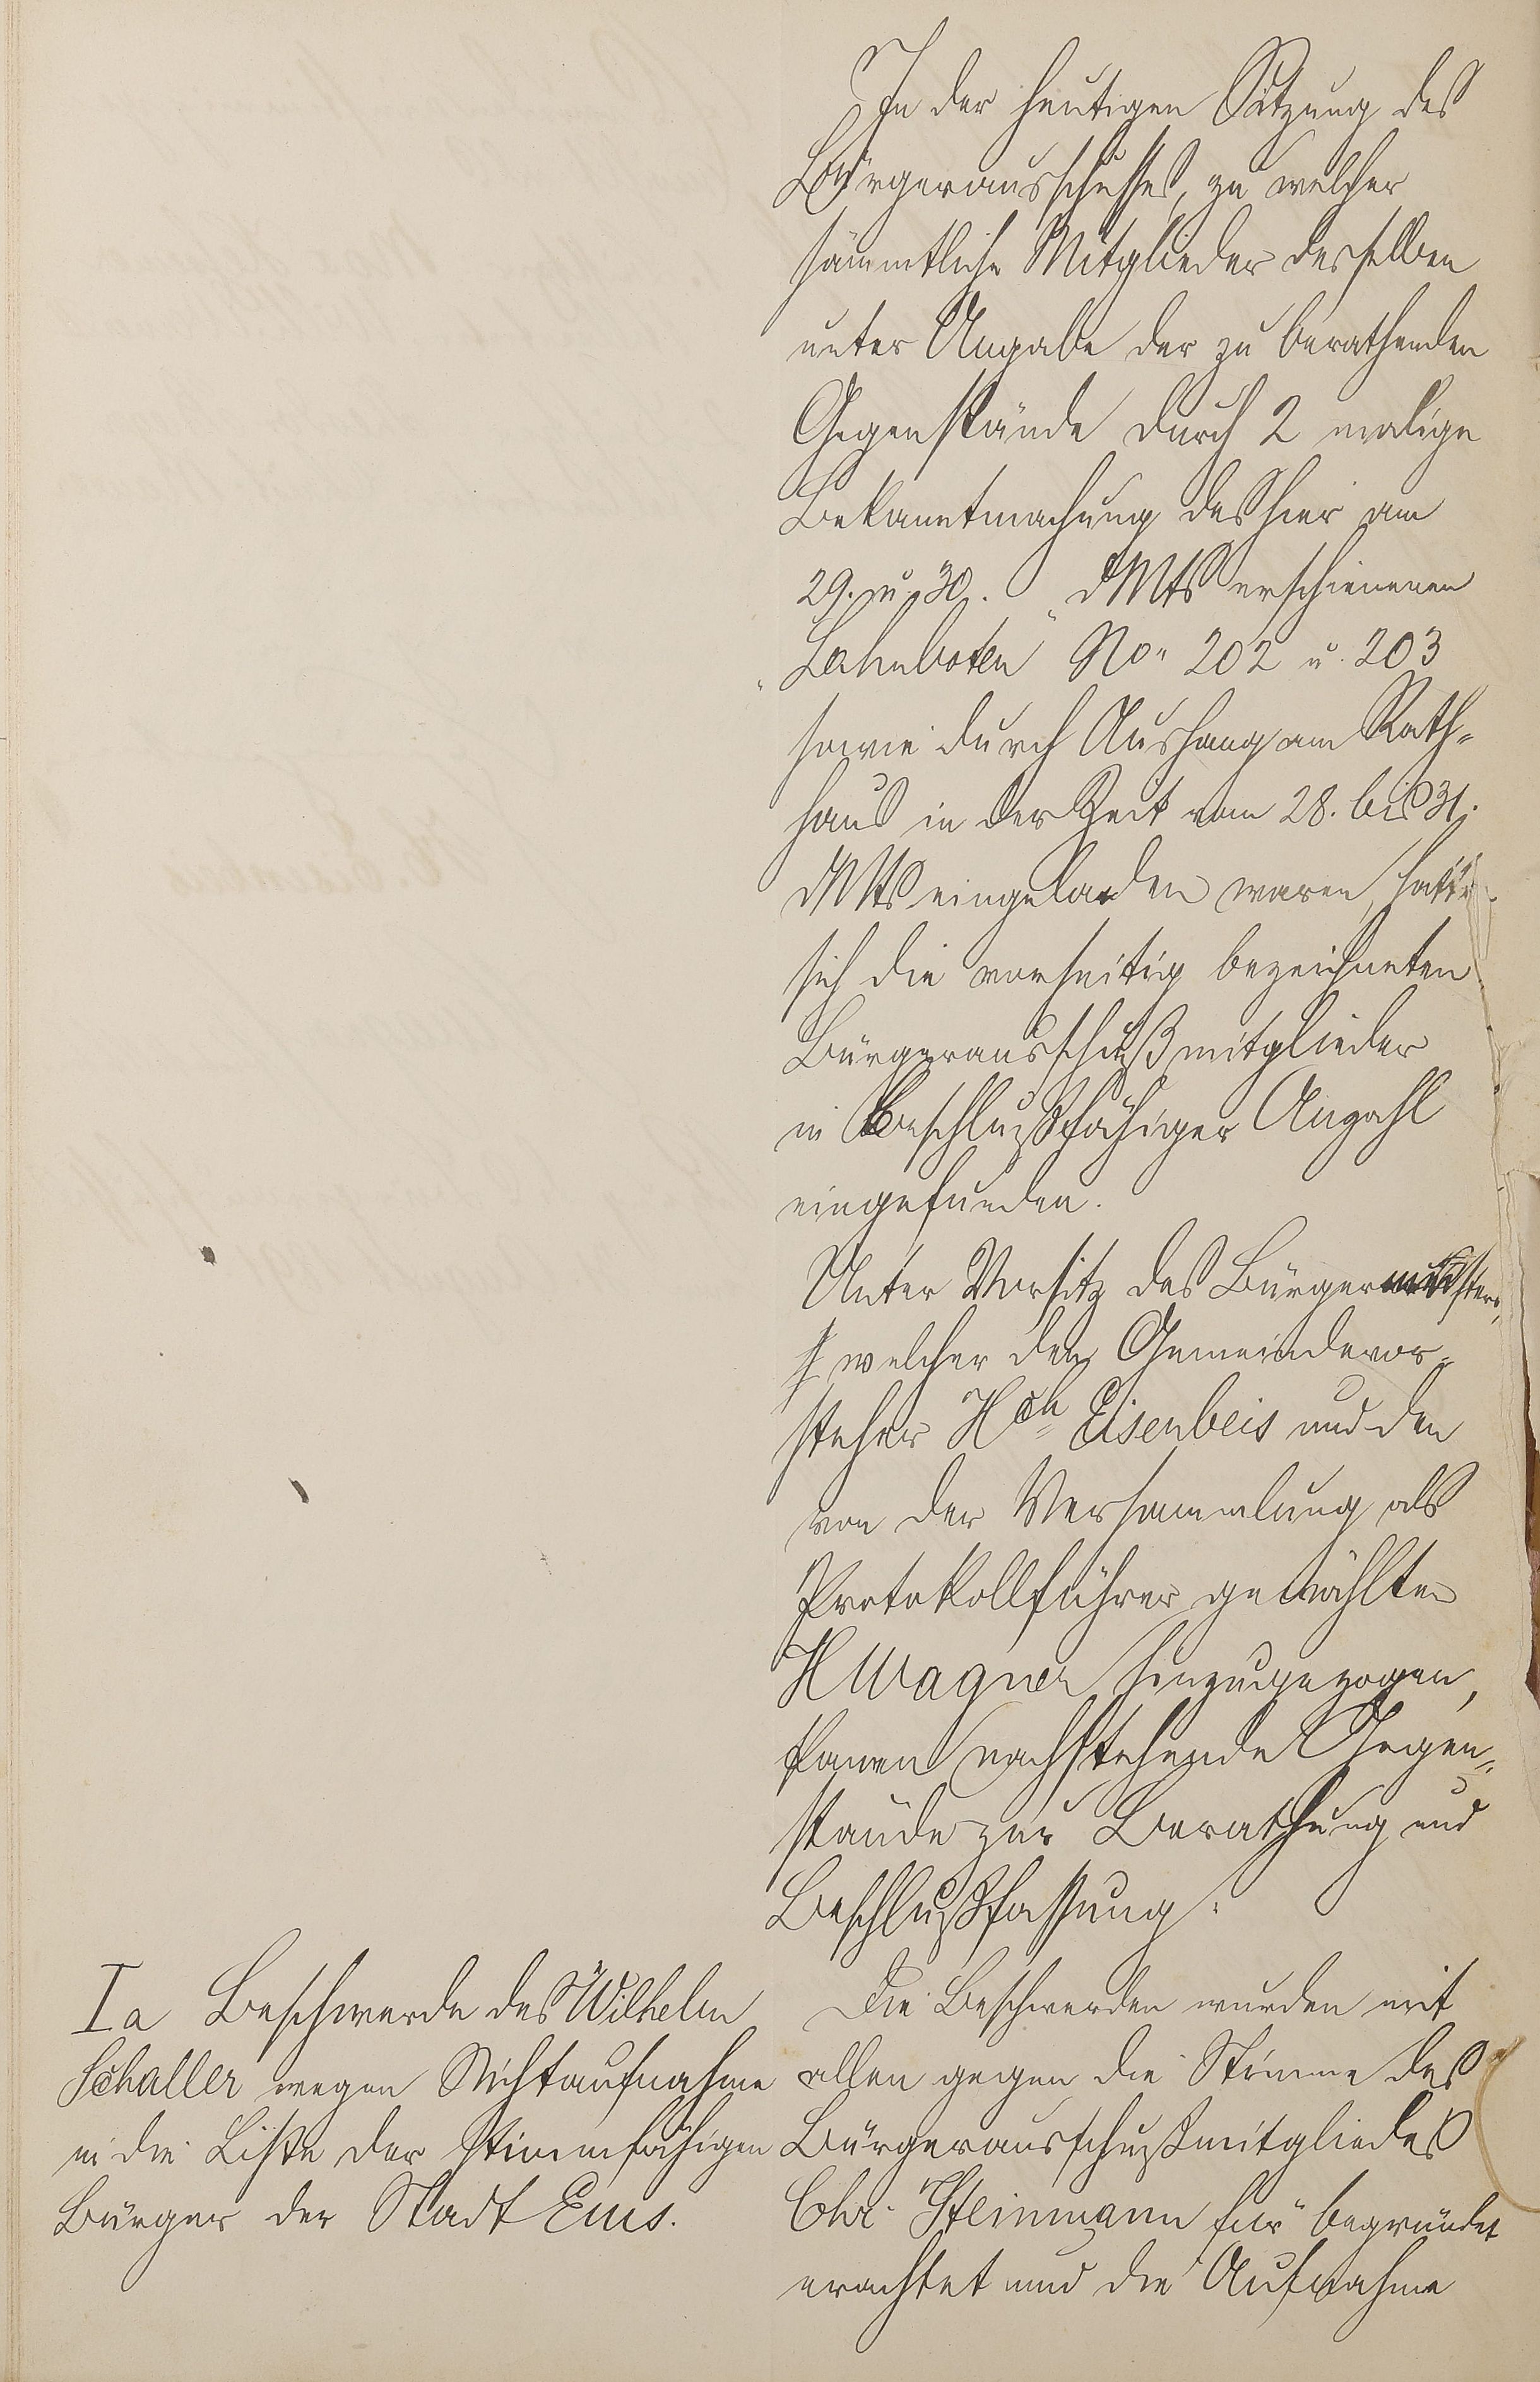 In der heutigen Sitzung des
Bürgerausschusses, zu welcher
sämmtliche Mitglieder desselben
unter Angabe der zu berathenden
Gegenstände durch 2 malige
Bekanntmachung des hier am
29. u. 30. dMts erschienenen
"Lahnboten" No. 202 u. 203
sowie durch Aushang am Rath-
haus in der Zeit vom 28. bis 31.
dMts eingeladen waren, hatten
sich die vorseitig bezeichneten
Bürgerausschußmitglieder
in beschlußfähiger Anzahl
eingefunden.
Unter Vorsitz des Bürgermeisters,
welcher den Gemeindevor-
steher Hch Eisenbeis und den
von der Versammlung als
Protokollführer gewählten
H Wagner hinzugezogen,
kamen nachstehende Gegen-
stände zur Berathung und
Beschlußfassung:
Ia Beschwerde des Wilhelm
Schaller wegen Nichtaufnahme
in die Liste der stimmfähigen
Bürger der Stadt Ems.
Die Beschwerden wurden mit
allen gegen die Stimme des
Bürgerausschußmitgliedes
Chr. Steinmann für begründet
erachtet und die Aufnahme